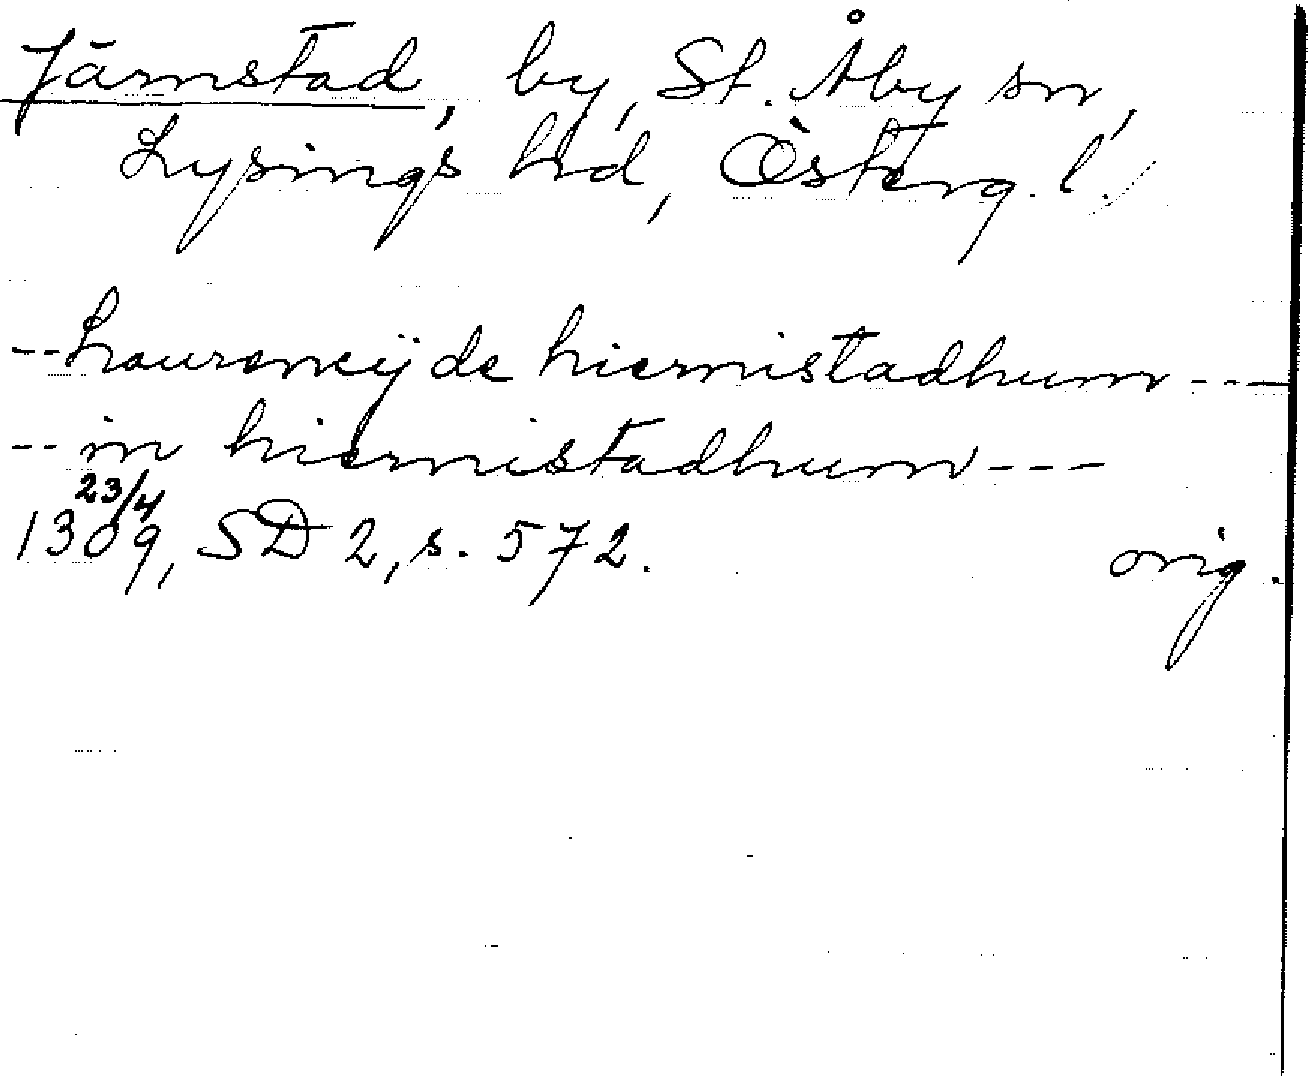 Järnstad, by, St. Åby sn,
Lysings hd, Österg. l.
--hauræncijde hiernistadhum---
--in hiernistadhum---
23/4
1309, SD 2, s. 572. orig.